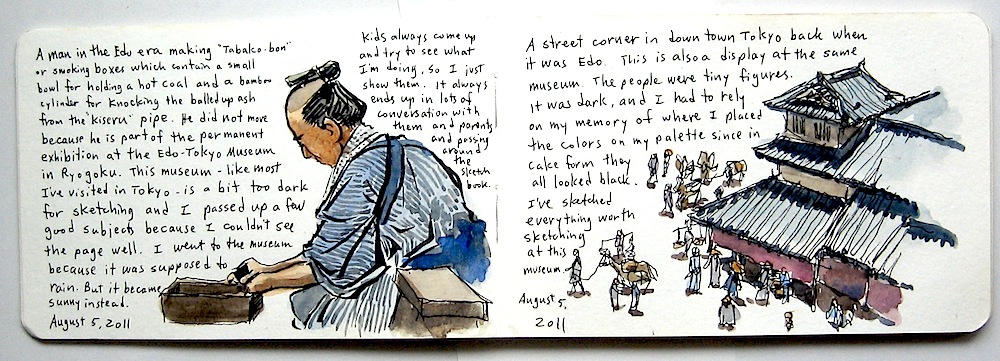 A man in the Edo era making "Tabako-bon"
or smoking boxes which contain a small
bowl for holding a hot coal and a bamboo
cylinder for knocking the balled up ash
from the "kiseru" pipe. He did not move
because he is part of the permanent
exhibition at the Edo-Tokyo Museum
in Ryogoku. This museum - like most
I've visited in Tokyo - is a bit too dark
for sketching and I passed up a few
good subjects because I couldn't see
the page well. I went to the museum
because it was supposed to
rain. But it became
sunny instead.
August 5, 2011
Kids always come up
and try to see what
I'm doing, so I just
show them. It always
ends up in lots of
conversation with
them and parents
and passing
around
the
sketch
book.
A street corner in downtown Tokyo back when
it was Edo. This is also a display at the same
museum. The people were tiny figures.
It was dark, and I had to rely
on my memory of where I placed
the colors on my palette since in
cake form they
all looked black.
I've sketched
everything worth
sketching
at this
museum.
August 5,
2011